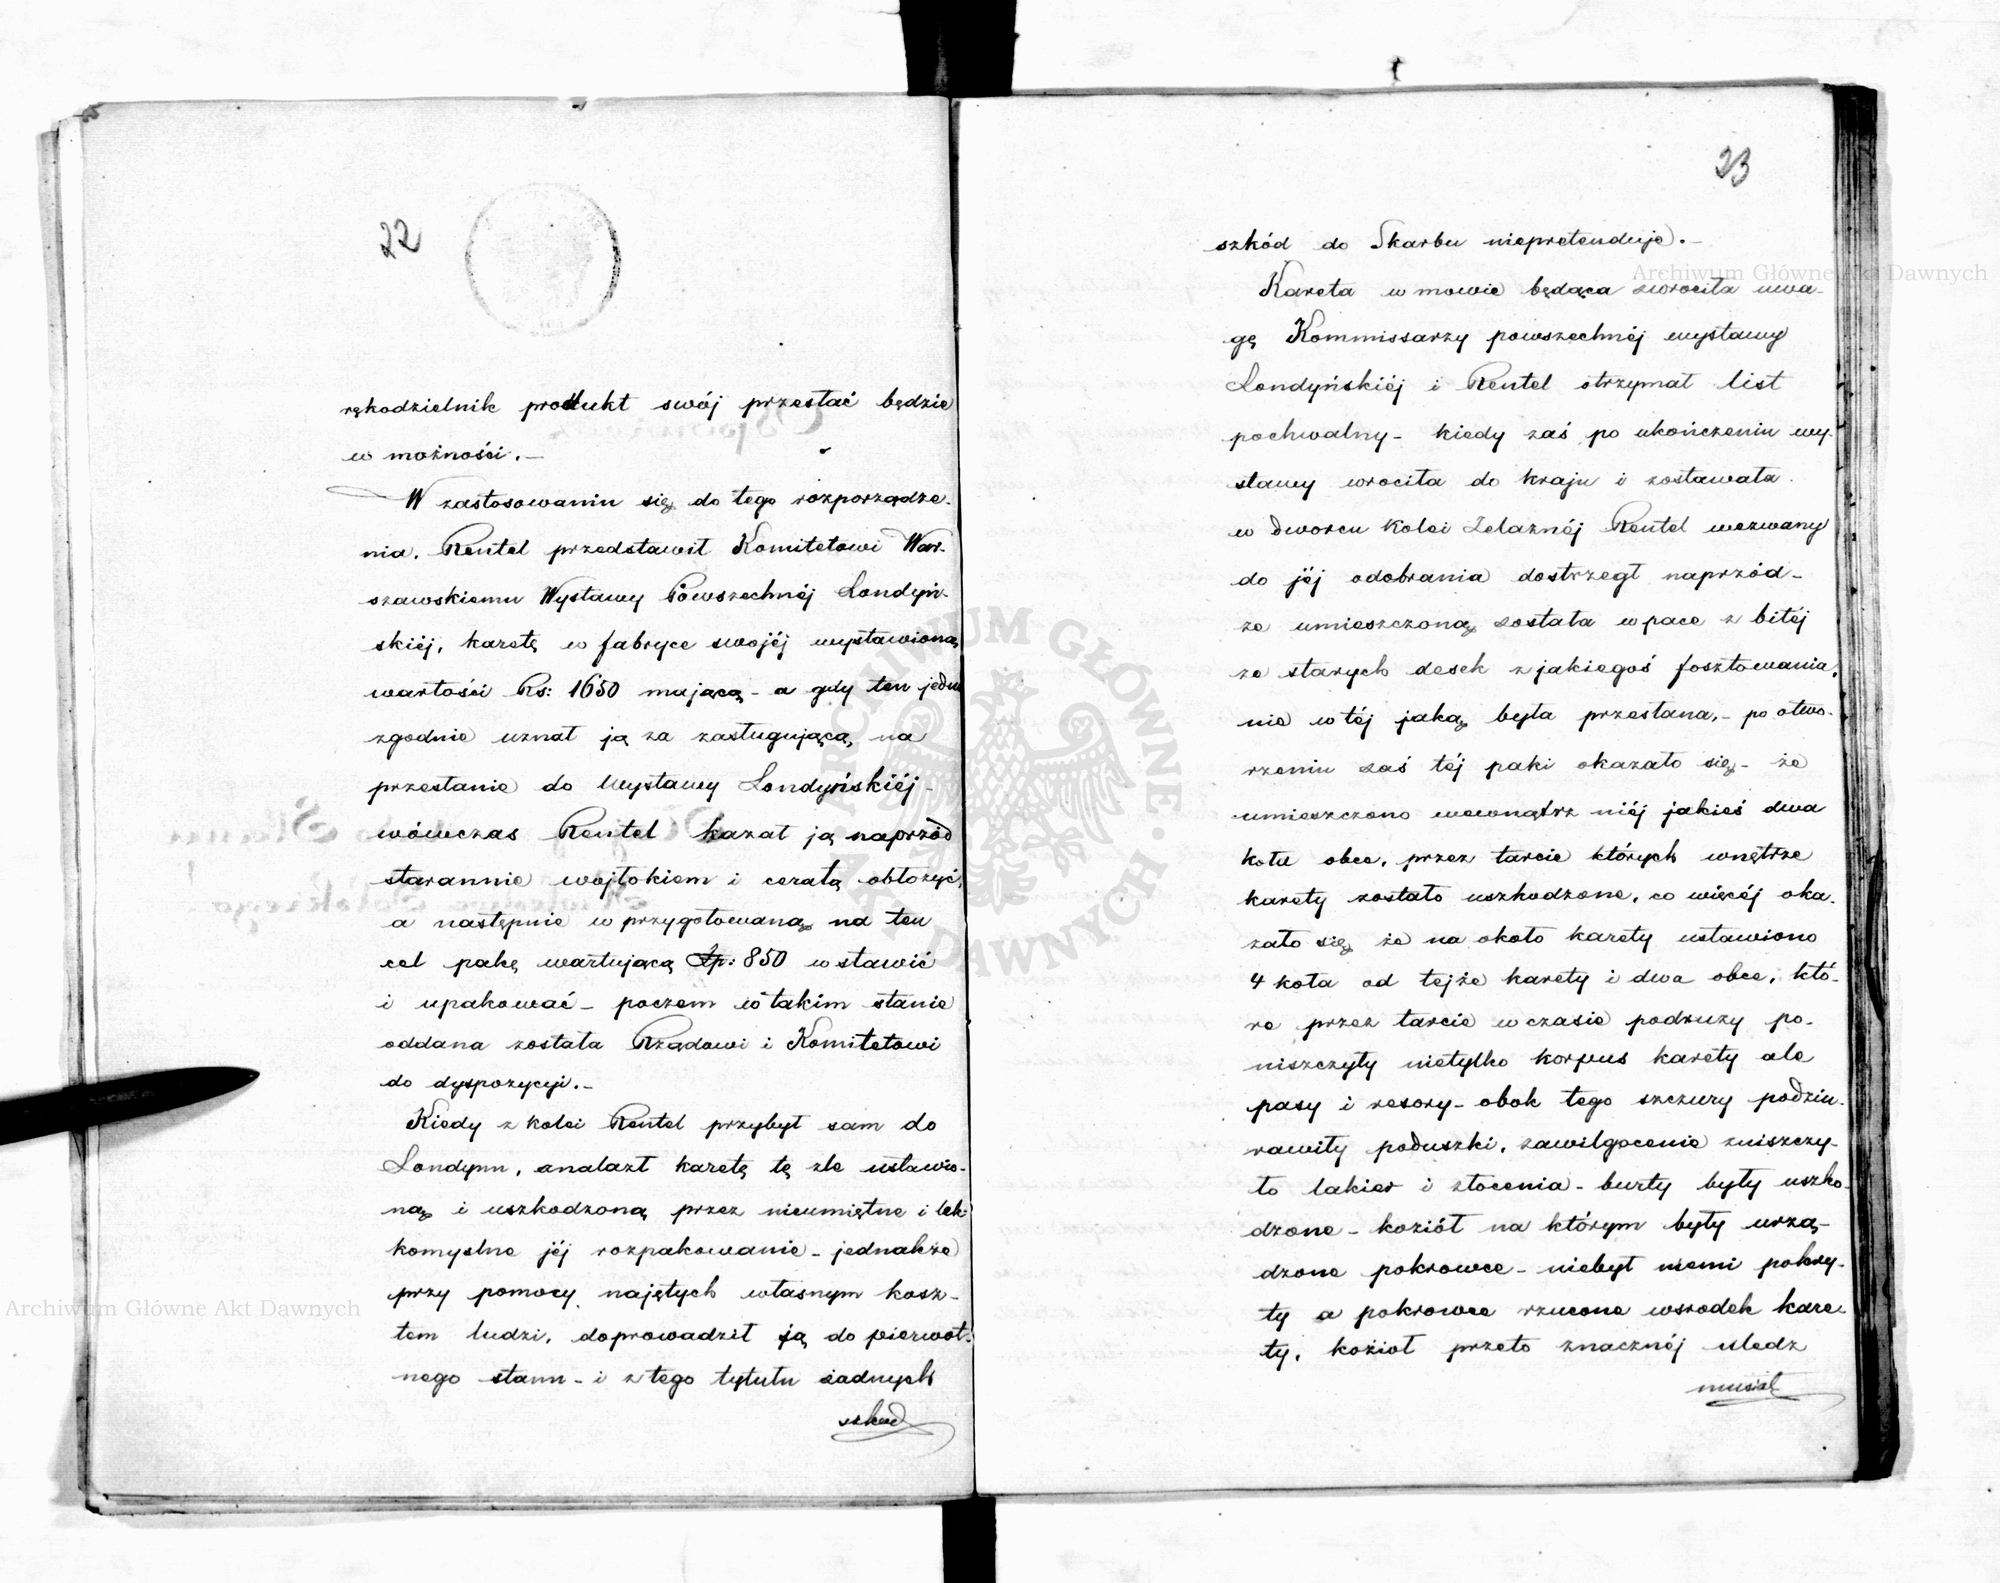 22
rękodzielnik produkt swój przesłać będzie
w możności. —
W zastosowaniu się do tego rozporządze-
nia. Rentel przedstawił Komitetowi War-
szawskiemu Wystawy Powszechnéj Londyń-
skiéj, karetę w fabryce swojéj wystawioną
wartości Rs: 1650 mającą - a gdy ten jedno
zgodnie uznał ją za zasługującą na
przesłanie do Wystawy Londyńskiéj -
wówczas Rentel kazał ją naprzód
starannie wojłokiem i ceratą obłożyć,
a następnie w przygotowaną na ten
cel pakę wartującą Złp: 850 wstawić
i upakować - poczem w takim stanie
oddana została Rządowi i Komitetowi
do dyspozycyi. -
Kiedy z kolei Rentel przybył sam do
Londynu, znalazł karetę tę źle ustawio-
ną i uszkodzoną przez nieumiętne i lek-
komyślne jéj rozpakowanie - jednakże
przy pomocy najętych własnym kosz-
tem ludzi, doprowadził ją do pierwot-
nego stanu - i z tego tytułu żadnych
szkód
23
szkód do Skarbu niepretenduje. -
Kareta w mowie będąca zwrociła uwa-
gę Kommissarzy powszechnéj wystawy
Londyńskiéj i Rentel otrzymał list
pochwalny - kiedy zaś po ukończeniu wy-
stawy wrociła do kraju i zostawała
w dworcu Kolei Żelaznéj Rentel wezwany
do jéj odebrania dostrzegł naprzód -
że umieszczoną została w pace zbitéj
ze starych desek z jakiegoś fosztowania,
nie w téj jaką była przesłana, - po otwo-
rzeniu zaś téj paki okazało się - że
umieszczono wewnątrz niéj jakieś dwa
koła obce, przez tarcie których wnętrze
karety zostało uszkodzone, co więcéj oka-
zało się że na około karety ustawiono
4 koła od tejże karety i dwa obce, któ-
re przez tarcie w czasie podruży po-
niszczyły nietylko korpus karety ale
pasy i resory - obok tego szczury podziu-
rawiły poduszki, zawilgocenie zniszczy-
ło lakier i złocenia - burty były uszko-
dzone - kozioł na którym były urzą-
dzone pokrowce - niebył niemi pokry-
ty a pokrowce rzucone wśrodek kare-
ty, kozioł przeto znacznéj uledz
musiał
Archiwum Główne Akt Dawnych
Archiwum Główne Akt Dawnych
ARCHIWUM GŁÓWNE AKT DAWNYCH